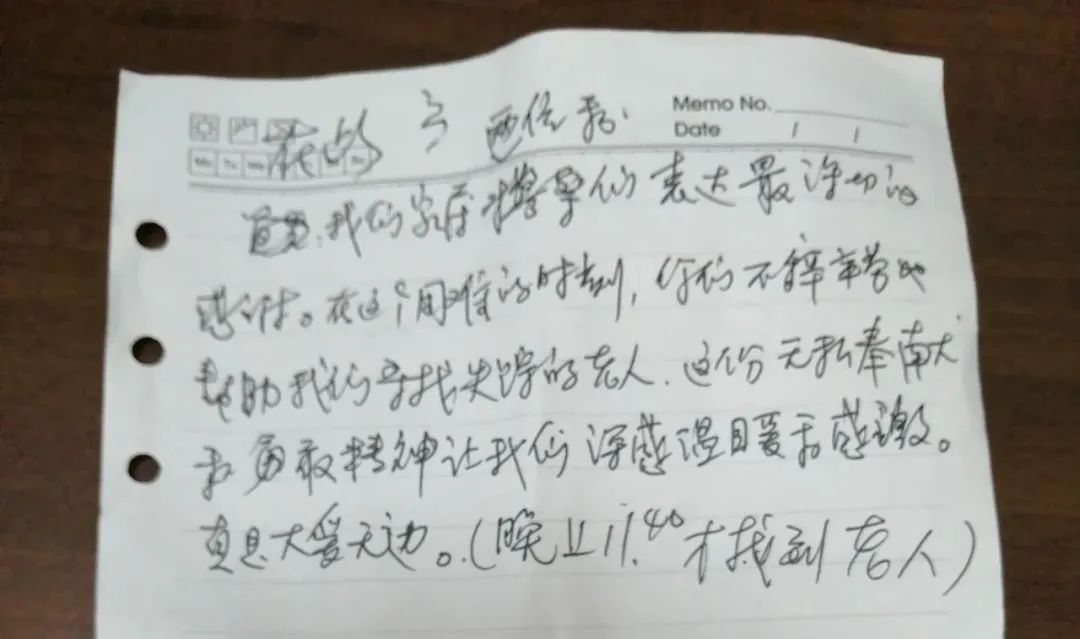 Memo No.
Date / /
我的 两位
首先,我们家属对警察们表达最深切的
感谢。在这个困难的时刻,你们不辞辛劳地
帮助我们寻找失踪的老人,这份无私奉献
和勇敢精神让我们深感温暖和感激。
真是大爱无边。(晚上11.40才找到老人)